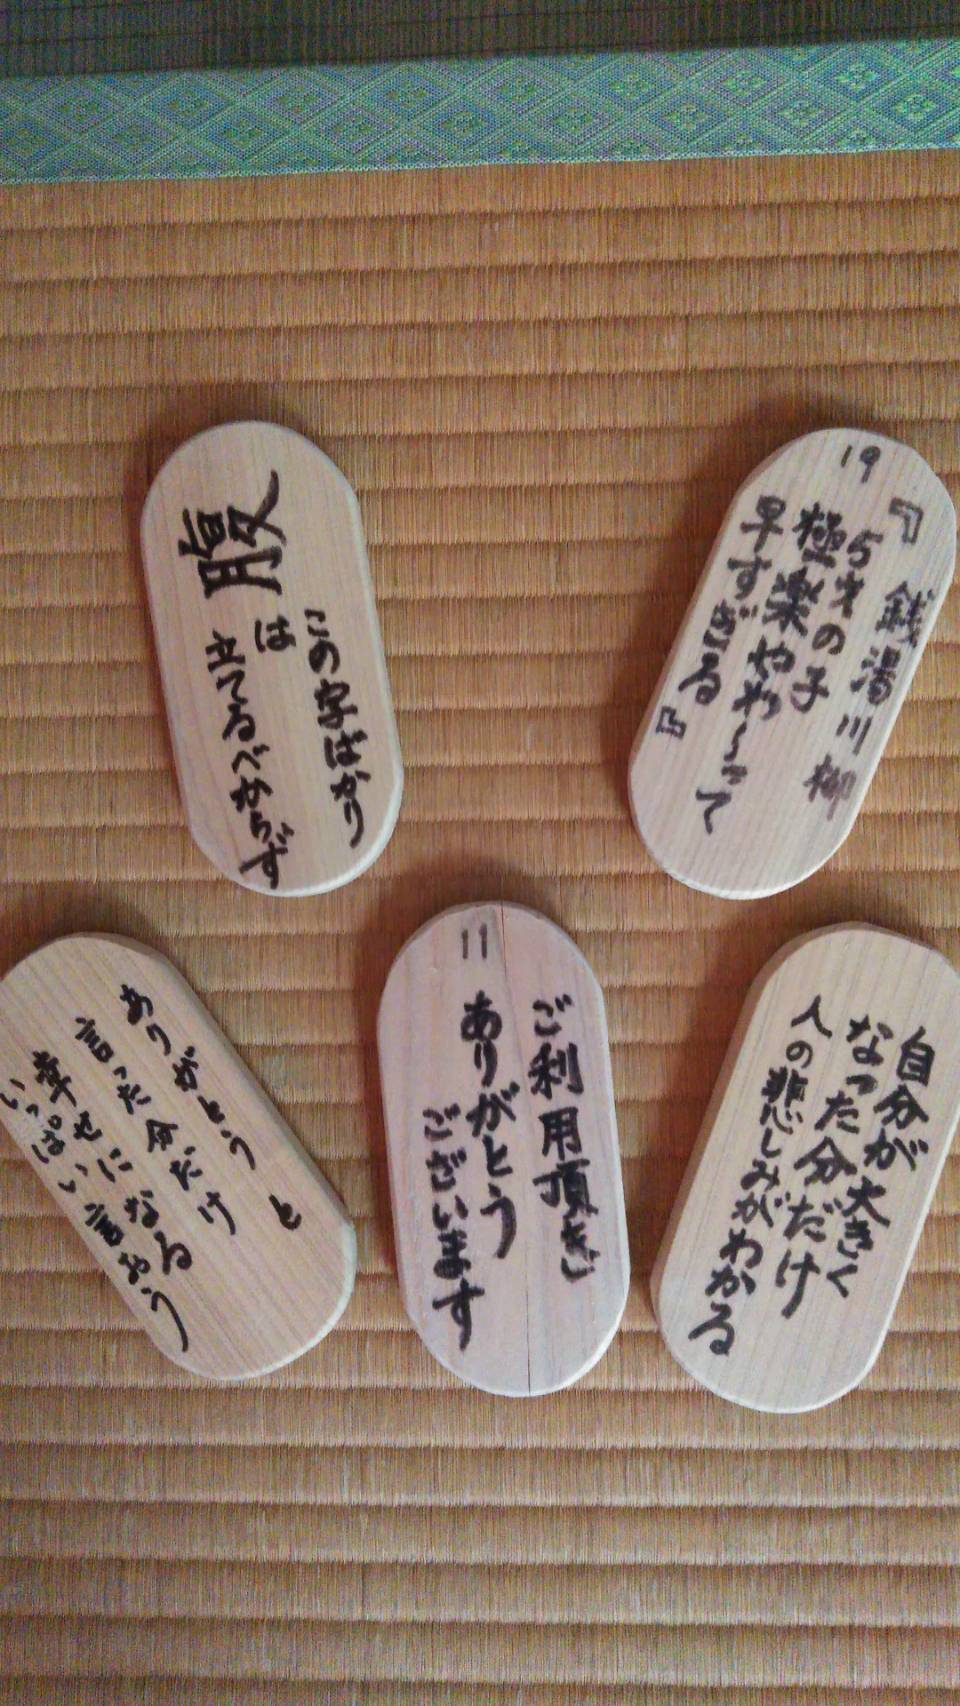 この字ばかり
腹は
立てるべからず
19
『銭湯川柳
5才の子
極楽やわ〜って
早すぎる『
ありがとうと
言った分だけ
幸せになる
いっぱい言おう
11
ご利用頂き
ありがとう
ございます
自分が大きく
なった分だけ
人の悲しみがわかる